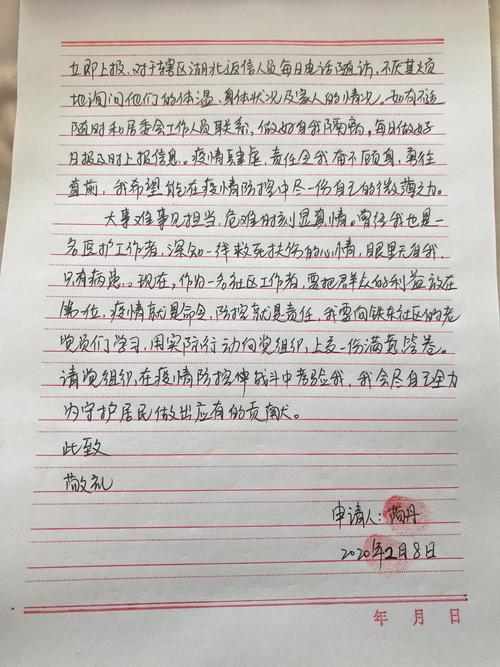 立即上报,对于辖区湖北返信人员每日电话随访,不厌其烦
地询问他们的体温、身体状况及家人的情况。如有不适
随时和居委会工作人员联系,做好自我隔离,每日做好
日报及时上报信息。疫情肆虐,责任令我奋不顾身,勇往
直前,我希望能在疫情防控中尽一份自己的微薄之力。
大事难事见担当,危难时刻显真情。曾经我也是一
名医护工作者,深知一线救死扶伤的心情,眼里无自我,
只有病患。现在,作为一名社区工作者,要把群众的利益放在
第一位,疫情就是命令,防控就是责任,我要向铁东社区的老
党员们学习,用实际行动向党组织,上交一份满意答卷。
请党组织,在疫情防控阵战斗中考验我,我会尽自己全力
为守护居民做出应有的贡献。
此致
敬礼
申请人:丹
2020年2月8日
年 月 日